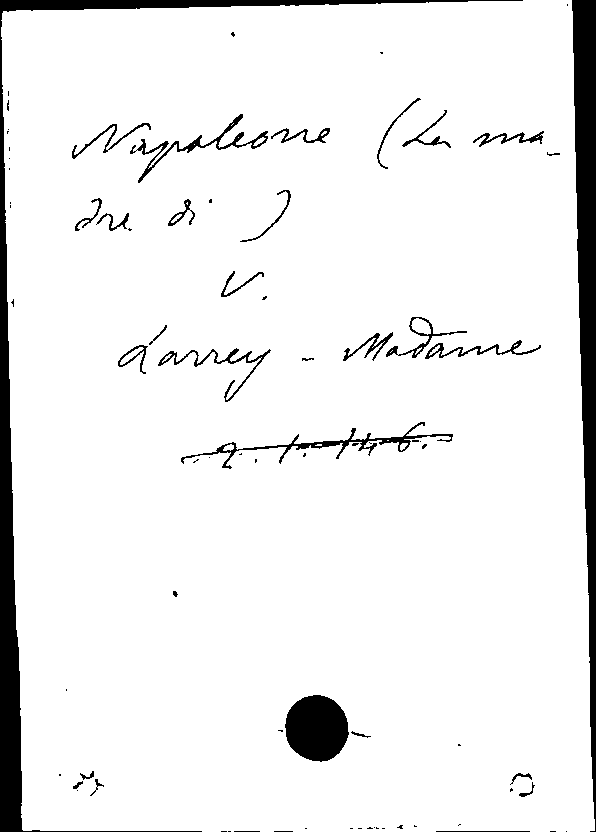 Napoleone (La ma-
dre di )
V.
Larrey - Madame
2. 1. 146.